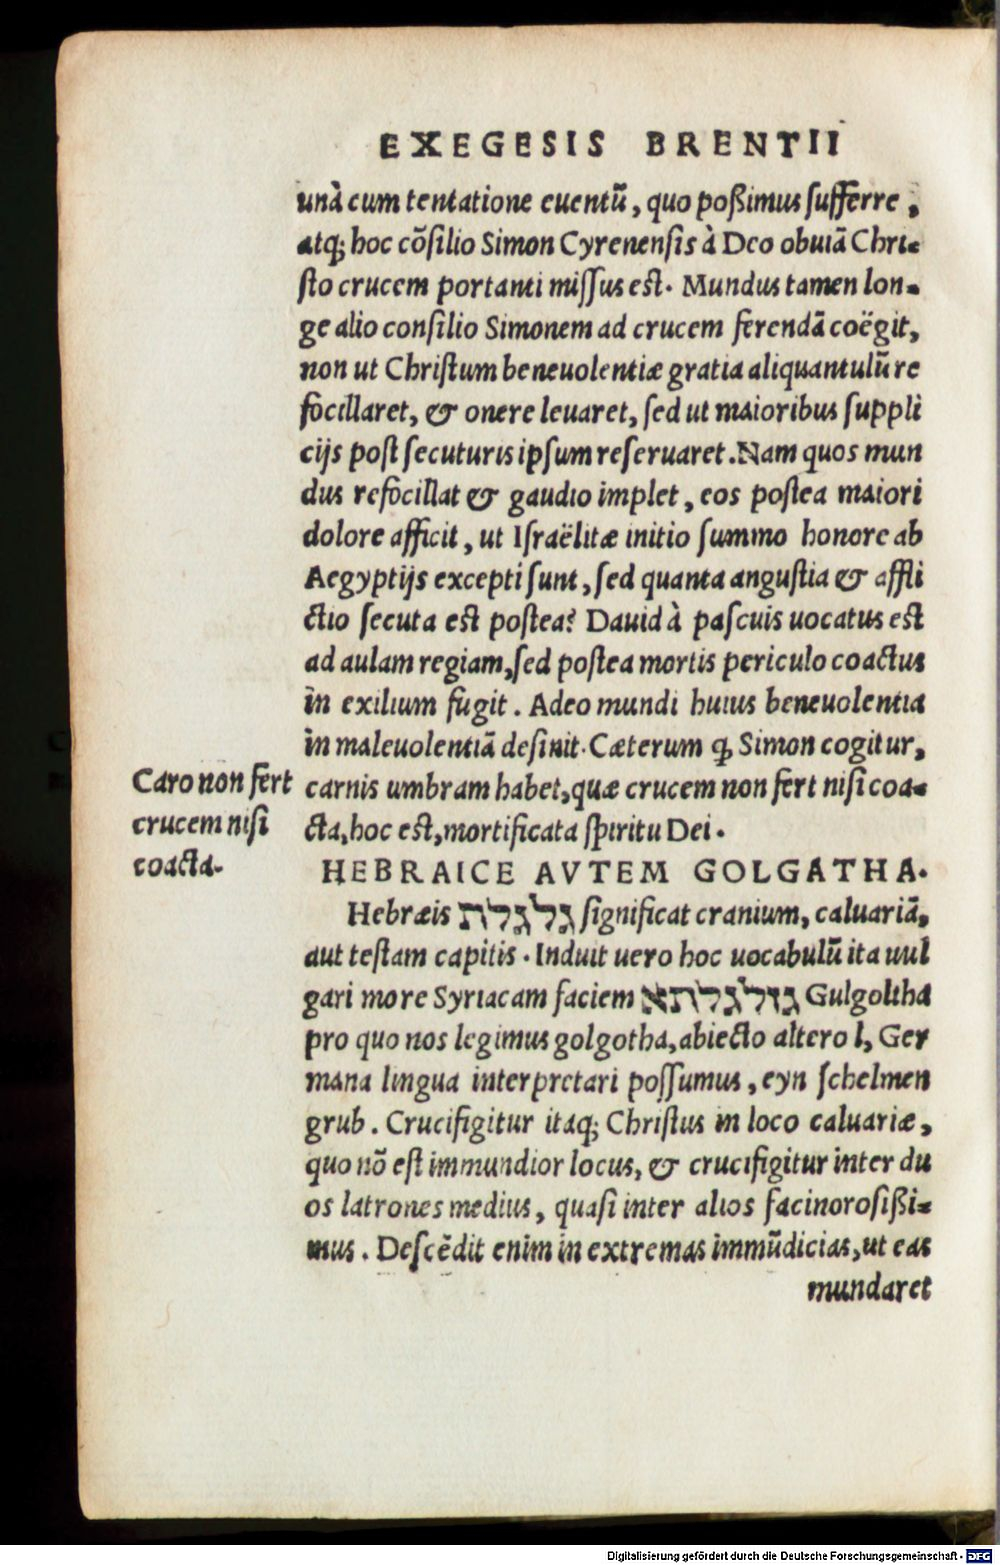 EXEGESIS BRENTII
unà cum tentatione euentũ, quo poßimus ſufferre,
atq; hoc cõſilio Simon Cyrenenſis à Deo obuiã Chri-
ſto crucem portanti miſſus eſt. Mundus tamen lon-
ge alio conſilio Simonem ad crucem ferendã coëgit,
non ut Chriſtum beneuolentiæ gratia aliquantulũ re
focillaret, & onere leuaret, ſed ut maioribus ſuppli
cijs poſt ſecuturis ipſum reſeruaret. Nam quos mun
dus refocillat & gaudio implet, eos poſtea maiori
dolore afficit, ut Iſraëlitæ initio ſummo honore ab
Aegyptijs excepti ſunt, ſed quanta anguſtia & affli
ctio ſecuta eſt poſtea? Dauid à paſcuis uocatus eſt
ad aulam regiam, ſed poſtea mortis periculo coactus
in exilium fugit. Adeo mundi huius beneuolentia
in maleuolentiã deſinit. Cæterum ꝙ Simon cogitur,
carnis umbram habet, quæ crucem non fert niſi coa-
cta, hoc eſt, mortificata ſpiritu Dei.
Caro non fert
crucem niſi
coacta.
HEBRAICE AVTEM GOLGATHA.
Hebræis גלגלת ſignificat cranium, caluariã,
aut teſtam capitis. Induit uero hoc uocabulũ ita uul
gari more Syriacam faciem גולגלתא Gulgoltha
pro quo nos legimus golgotha, abiecto altero l, Ger
mana lingua interpretari poſſumus, eyn ſchelmen
grub. Crucifigitur itaq; Chriſtus in loco caluariæ,
quo nõ eſt immundior locus, & crucifigitur inter du
os latrones medius, quaſi inter alios facinoroſißi-
mus. Deſcẽdit enim in extremas immũdicias, ut eas
mundaret
Digitalisierung gefördert durch die Deutsche Forschungsgemeinschaft - DFG